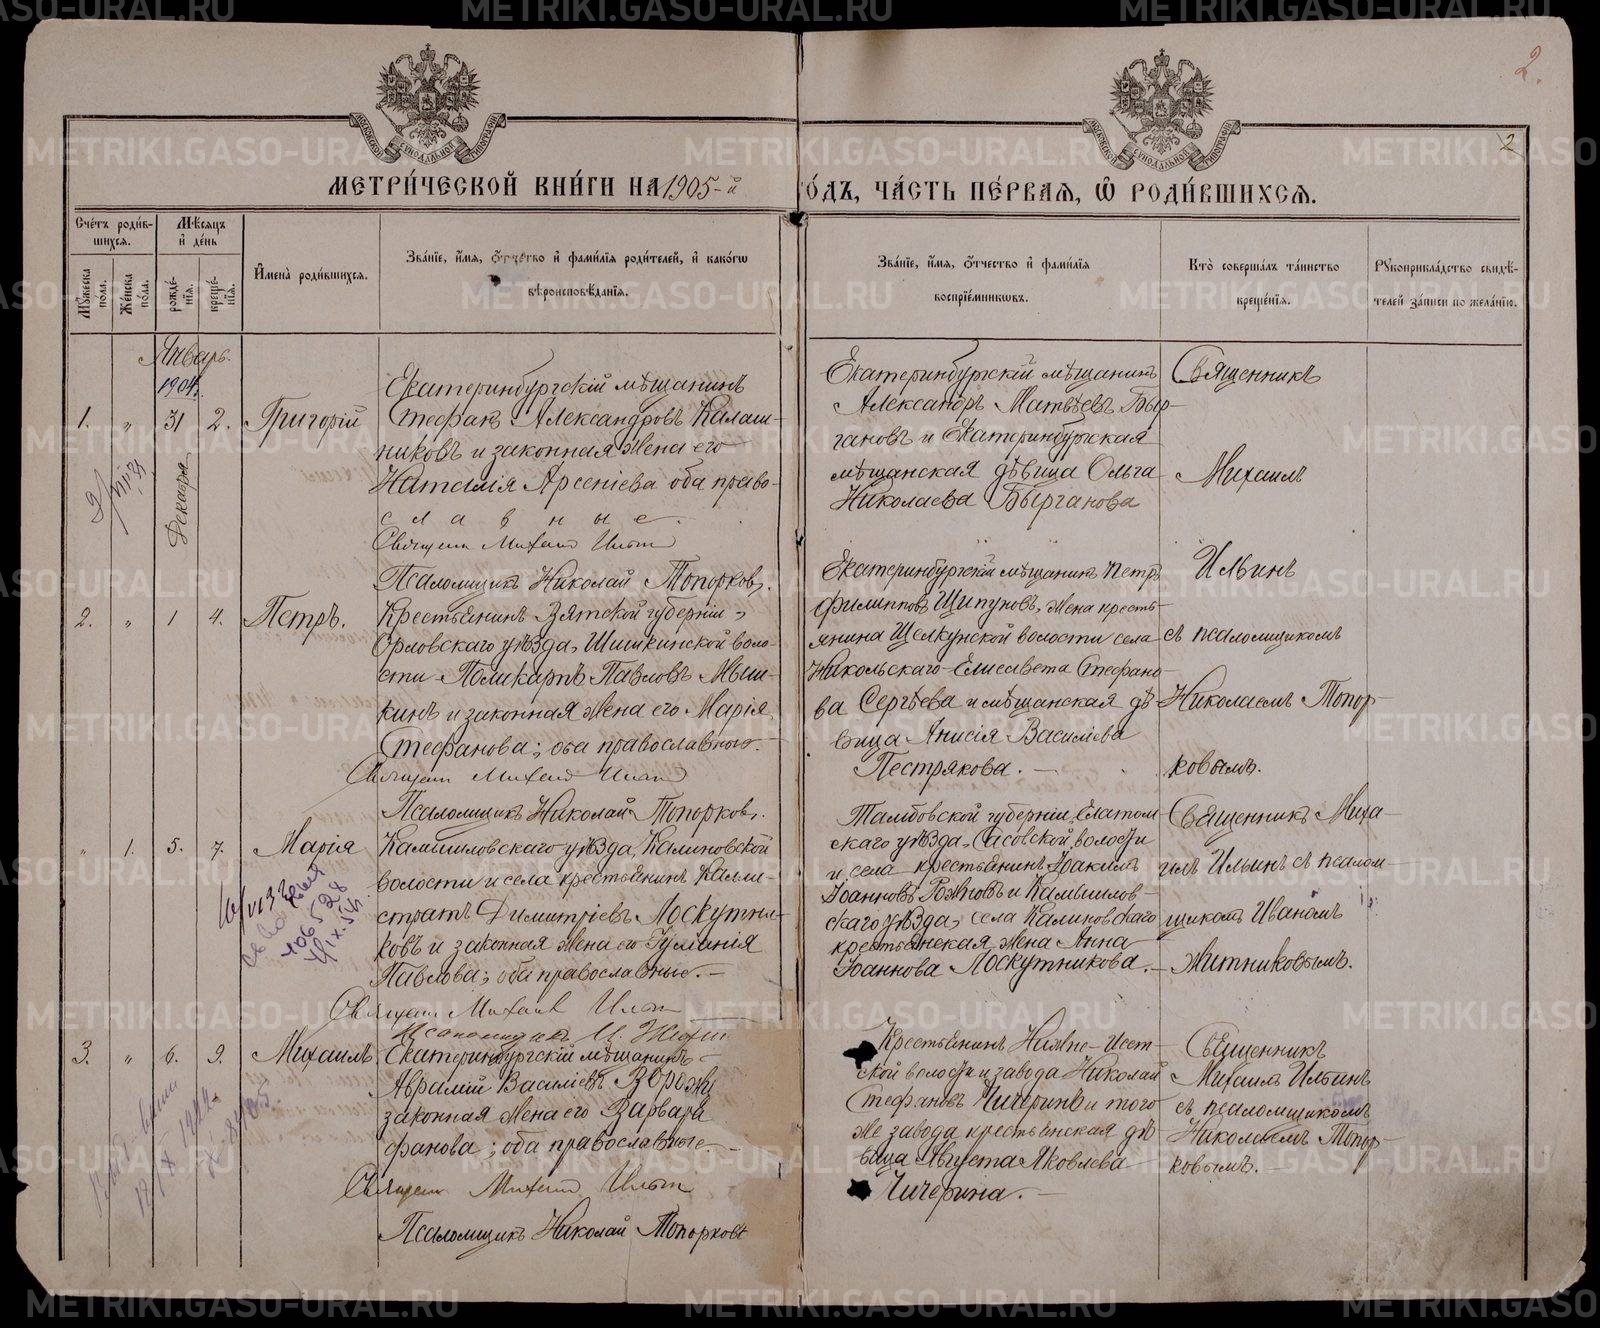 METRIKI.GASO-URAL.RU
2.
2
МЕТРИ́ЧЕСКОЙ КНИ́ГИ НА 1905-й
ГО́ДЪ, ЧА́СТЬ ПЕ́РВАЯ, Ѿ РОДИ́ВШИХСѦ.
Сче́тъ роди́в-
шихся.
Мѣ́сяцъ
и҆ де́нь
Мꙋ́жеска
по́ла.
Же́нска
по́ла.
рожде́-
нїѧ.
креще́-
нїѧ.
И҆мена̀ роди́вшихся.
Зва́нїе, и҆́мя, ѻ҆́тчество и҆ фами́лїѧ роди́телей, и҆ како́гѡ
вѣ́роисповѣ́данїѧ.
Зва́нїе, и҆́мя, ѻ҆́тчество и҆ фами́лїѧ
воспрїе́мниковъ.
Кто̀ соверша́лъ та́инство
креще́нїѧ.
Рꙋкоприкла́дство свидѣ́-
телей за́писи по жела́нїю.
Январь.
1904.
1. „ 31 2. Григорій
Декабря
Екатеринбургскій мѣщанинъ
Стефанъ Александровъ Калаш-
никовъ и законная жена его
Наталія Арсеніева оба право-
славные.
Священ Михаил Ильин
Псаломщикъ Николай Топорковъ.
Екатеринбургскій мѣщанинъ
Александръ Матвѣевъ Быр-
гановъ и Екатеринбургская
мѣщанская дѣвица Ольга
Николаева Бырганова
Священникъ
Михаилъ
Ильинъ
съ псаломщикомъ
Николаемъ Топор-
ковымъ.
2. „ 1 4. Петръ.
Крестьянинъ Вятской губерніи,
Орловскаго уѣзда, Шишкинской воло-
сти Поликарпъ Павловъ Мыш-
кинъ и законная жена его Марія
Стефанова; оба православные.
Священ Михаил Ильин
Псаломщикъ Николай Топорковъ.
Екатеринбургскій мѣщанинъ Петръ
Филипповъ Щипуновъ, жена кресть-
янина Щелкунской волости села
Никольскаго Елисавета Стефано-
ва Сергѣева и мѣщанская дѣ-
вица Анисія Василіева
Пестрякова.
„ 1. 5. 7. Марія
Камышловскаго уѣзда, Калиновской
волости и села крестьянинъ Калли-
стратъ Димитріевъ Лоскутни-
ковъ и законная жена его Гуланія
Павлова; оба православные.
Священ Михаил Ильин
Псаломщикъ И. Житн
Тамбовской губерніи, Елатом
скаго уѣзда, Сасовской волости
и села крестьянинъ Іоакимъ
Іоанновъ Рожновъ и Камышлов-
скаго уѣзда, села Калиновскаго
крестьянская жена Анна
Іоаннова Лоскутникова.
Священникъ Миха-
илъ Ильинъ съ псалом-
щикомъ Иваномъ
Житниковымъ.
3. „ 6. 9. Михаилъ
Екатеринбургскій мѣщанинъ
Аврамій Василіевъ
законная жена его Варвара
фанова; оба православные.
Священ Михаил Ильин
Псаломщикъ Николай Топорковъ
Крестьянинъ Нязпе-
ской волости и завода Николай
Стефановъ Чичеринъ и того
же завода крестьянская дѣ-
вица Августа Яковлева
Чичерина.
Священникъ
Михаилъ Ильинъ
съ псаломщикомъ
Николаемъ Топор-
ковымъ.